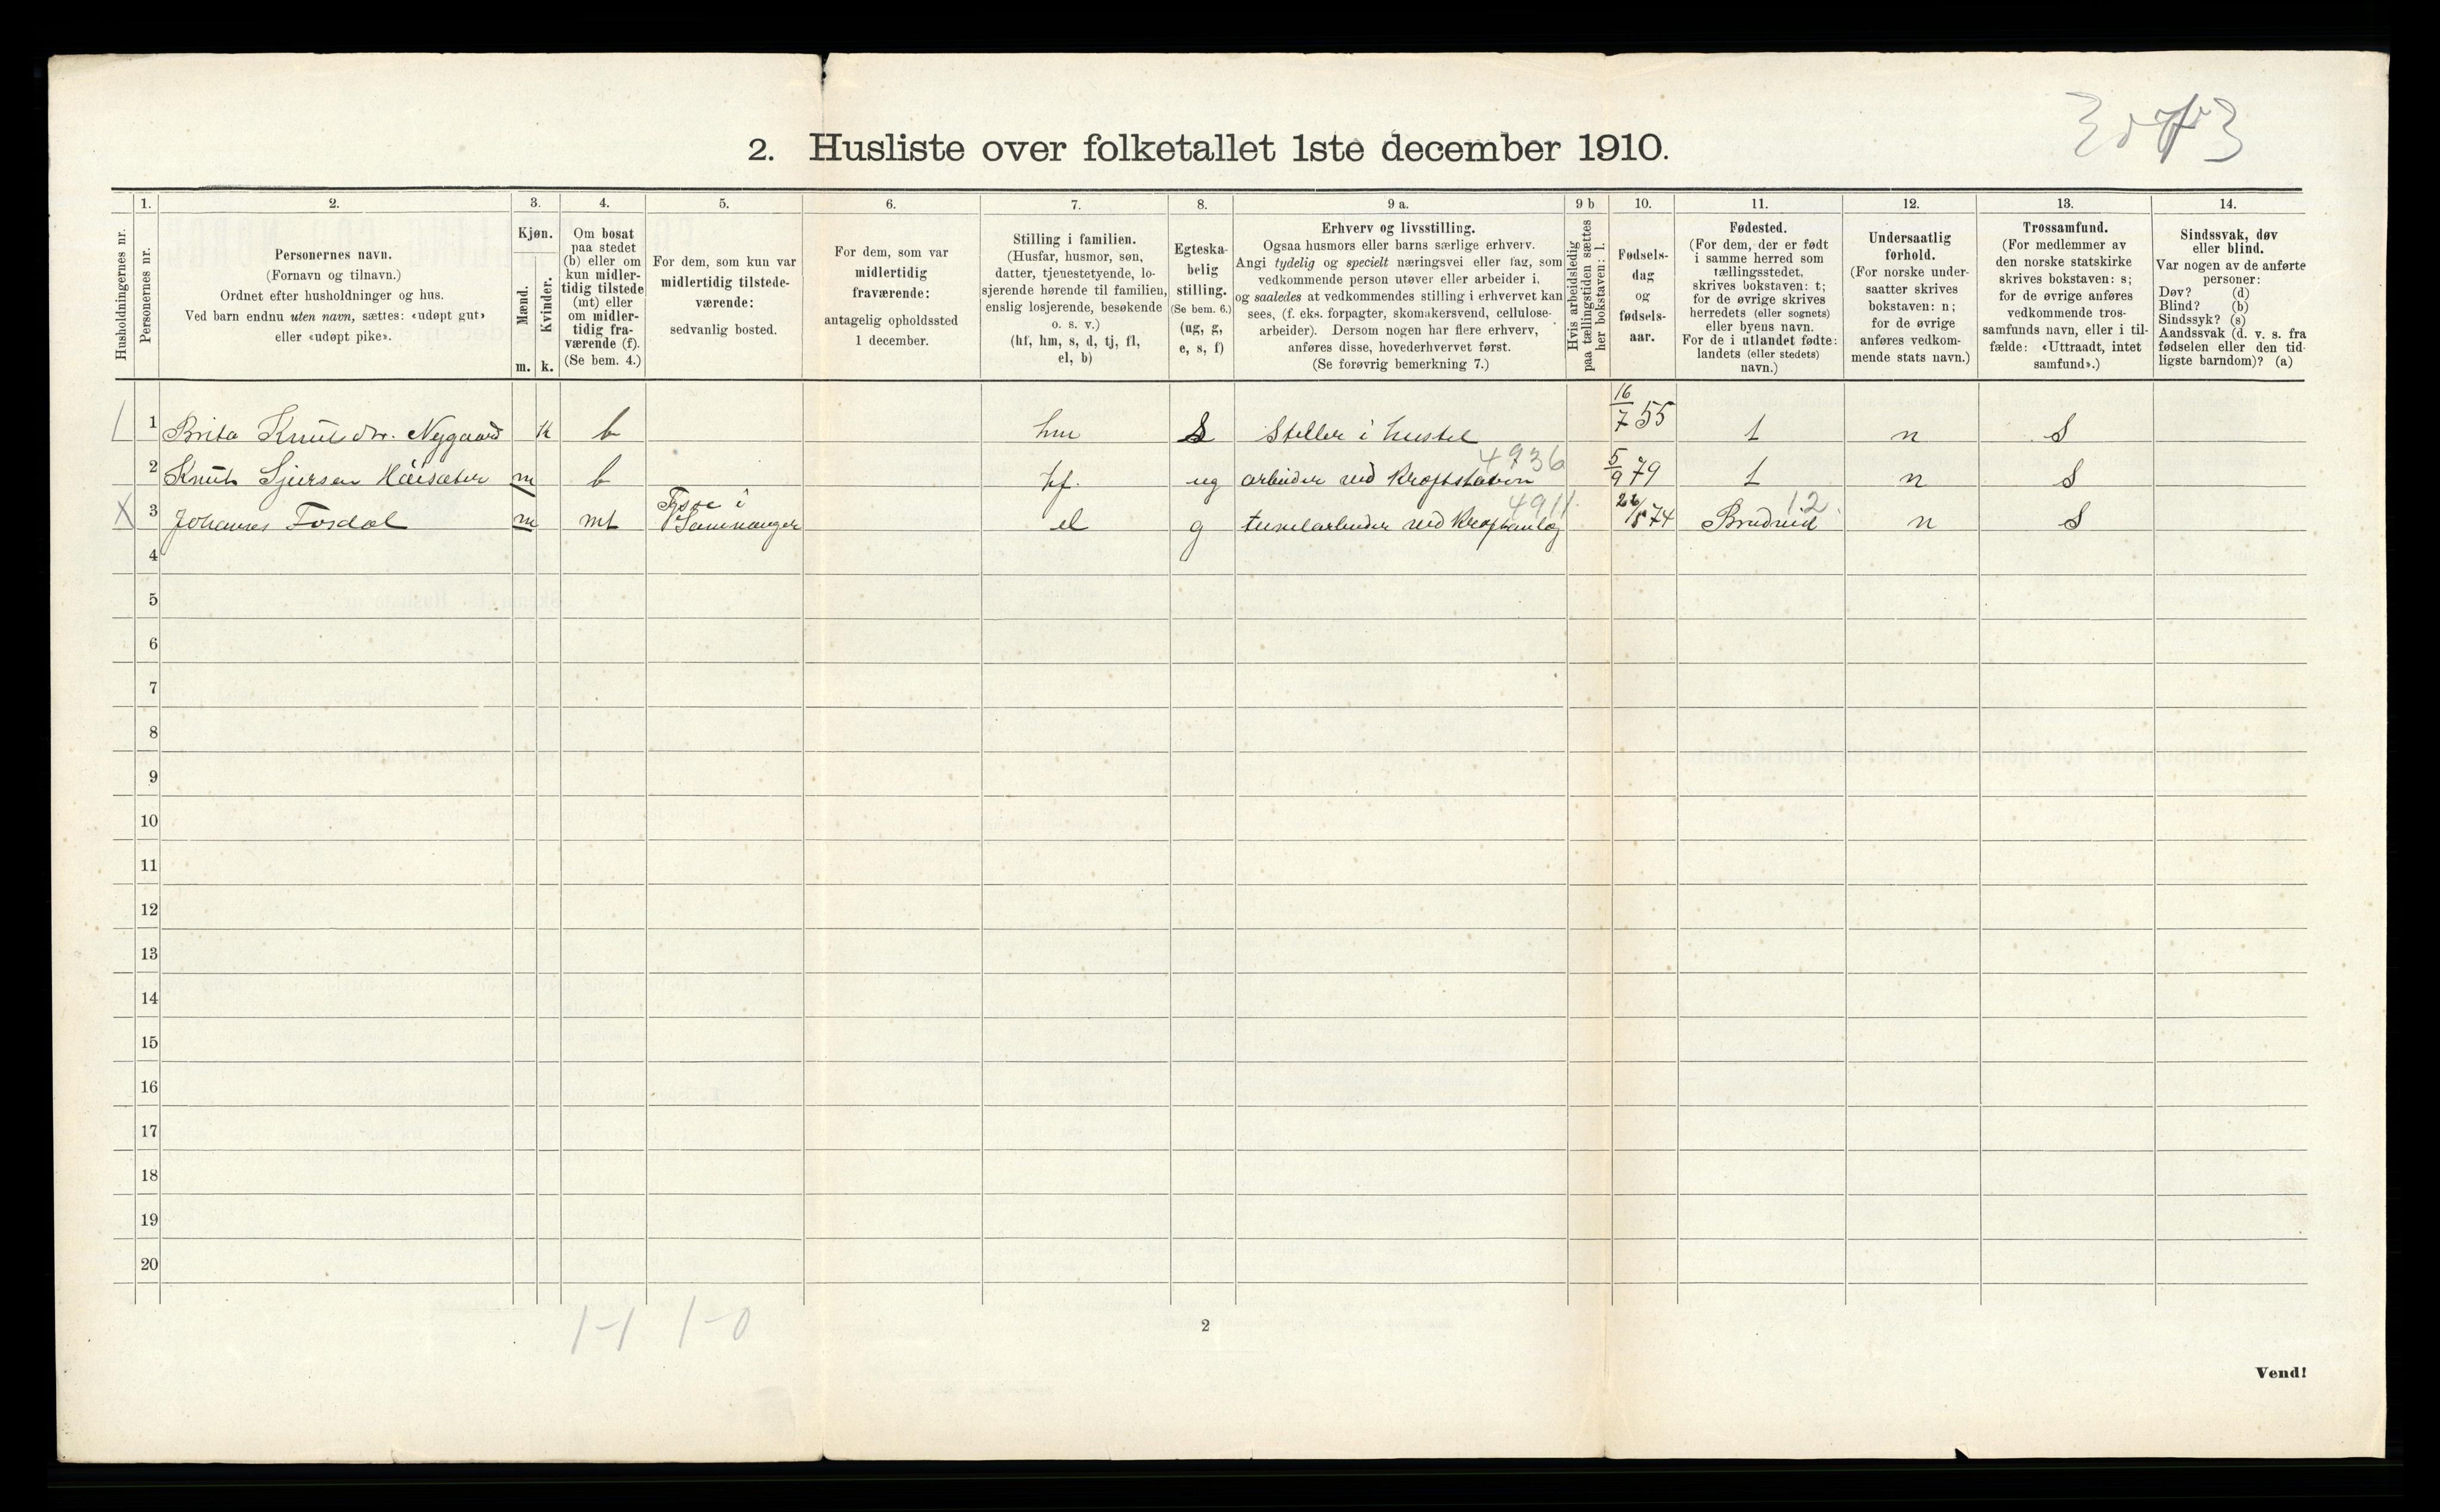 2. Husliste over folketallet 1ste december 1910.
Husholdningernes nr.
1.
Personernes nr.
2.
Personernes navn.
(Fornavn og tilnavn.)
Ordnet efter husholdninger og hus.
Ved barn endnu uten navn, sættes: «udøpt gut»
eller «udøpt pike».
3.
Kjøn.
Mænd.
Kvinder.
m. k.
4.
Om bosat
paa stedet
(b) eller om
kun midler-
tidig tilstede
(mt) eller
om midler-
tidig fra-
værende (f).
(Se bem. 4.)
5.
For dem, som kun var
midlertidig tilstede-
værende:
sedvanlig bosted.
6.
For dem, som var
midlertidig
fraværende:
antagelig opholdssted
1 december.
7.
Stilling i familien.
(Husfar, husmor, søn,
datter, tjenestetyende, lo-
sjerende hørende til familien,
enslig losjerende, besøkende
o. s. v.)
(hf, hm, s, d, tj, fl,
el, b)
8.
Egteska-
belig
stilling.
(Se bem. 6.)
(ug, g,
e, s, f)
9 a.
Erhverv og livsstilling.
Ogsaa husmors eller barns særlige erhverv.
Angi tydelig og specielt næringsvei eller fag, som
vedkommende person utøver eller arbeider i,
og saaledes at vedkommendes stilling i erhvervet kan
sees, (f. eks. forpagter, skomakersvend, cellulose-
arbeider). Dersom nogen har flere erhverv,
anføres disse, hovederhvervet først.
(Se forøvrig bemerkning 7.)
9 b
Hvis arbeidsledig
paa tællingstiden sættes
her bokstaven: l.
10.
Fødsels-
dag
og
fødsels-
aar.
11.
Fødested.
(For dem, der er født
i samme herred som
tællingsstedet,
skrives bokstaven: t;
for de øvrige skrives
herredets (eller sognets)
eller byens navn.
For de i utlandet fødte:
landets (eller stedets)
navn.)
12.
Undersaatlig
forhold.
(For norske under-
saatter skrives
bokstaven: n;
for de øvrige
anføres vedkom-
mende stats navn.)
13.
Trossamfund.
(For medlemmer av
den norske statskirke
skrives bokstaven: s;
for de øvrige anføres
vedkommende tros-
samfunds navn, eller i til-
fælde: «Uttraadt, intet
samfund».)
14.
Sindssvak, døv
eller blind.
Var nogen av de anførte
personer:
Døv? (d)
Blind? (b)
Sindssyk? (s)
Aandssvak (d. v. s. fra
fødselen eller den tid-
ligste barndom)? (a)
1 Brita Knutsdtr. Nygaard k b hm S Steller i huset 16/7 55 t n S
2 Knut Sjursen m b hf. ug arbeider ved Kraftstation 4936 5/9 79 t n S
X 3 Johannes Fosdal m mt Tysse i Samnanger el g tunelarbeider ved Kraftanlæg 4911 74 12 n S
4
5
6
7
8
9
10
11
12
13
14
15
16
17
18
19
20
1-1 1-0
2
Vend!